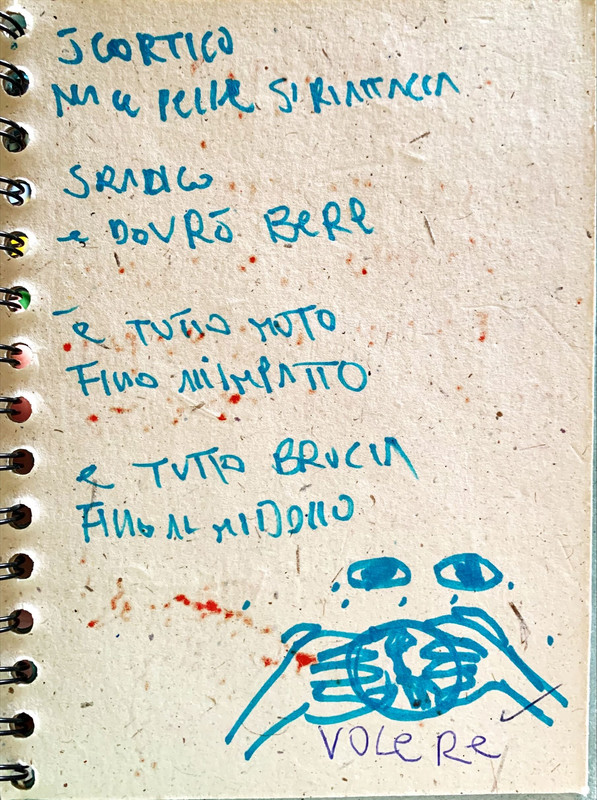 SCORTICO
MA LA PELLE SI RIATTACCA
SRADICO
e DOVRÒ BeRe
è TUTTO MUTO
FINO ALL'IMPATTO
e TUTTO BRUCIA
FINO AL MIDOLLO
VOLeRe